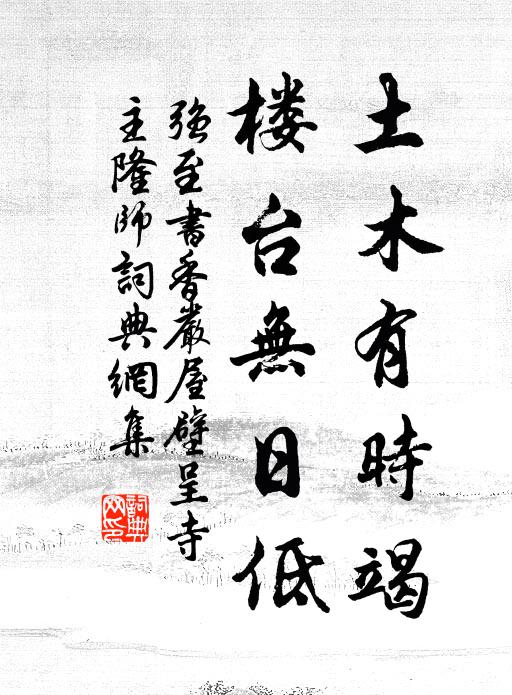 土木有時竭
楼台無日低
强至書香嚴屋壁呈寺
主隆師詞典網集
詞典
网印